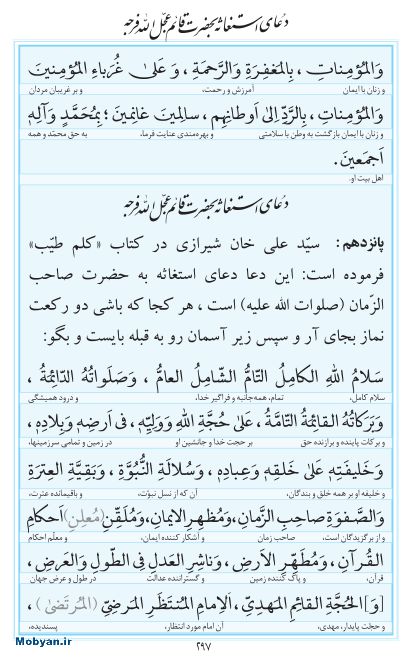 دعای استغاثه بحضرت قائم عجل الله فرجه
وَالْمُؤْمِناتِ ، بِالْمَغْفِرَةِ وَالرَّحْمَةِ ، وَ عَلىٰ غُرَباءِ الْمُؤْمِنينَ
و زنان با ایمان آمرزش و رحمت، و بر غریبان مردان
وَالْمُؤْمِناتِ ، بِالرَّدِّ اِلىٰ اَوْطانِهِمْ ، سالِمينَ غانِمينَ ؛ بِمُحَمَّدٍ وَآلِهِ
و زنان با ایمان بازگشت به وطن با سلامتی و بهره‌مندی عنایت فرما، به حق محمّد و همه
اَجْمَعينَ .
اهل بیت او.
دعای استغاثه بحضرت قائم عجل الله فرجه
پانزدهم: سیّد علی خان شیرازی در کتاب «کلم طیّب»
فرموده است: این دعا دعای استغاثه به حضرت صاحب
الزّمان (صلوات الله علیه) است ، هر کجا که باشی دو رکعت
نماز بجای آر و سپس زیر آسمان رو به قبله بایست و بگو:
سَلامُ اللهِ الْكامِلُ التّامُّ الشّامِلُ الْعامُّ ، وَصَلَواتُهُ الدّائِمَةُ ،
سلام کامل، تمام، همه‌جانبه و فراگیر خدا، و درود همیشگی
وَبَرَكاتُهُ الْقائِمَةُ التّامَّةُ ، عَلىٰ حُجَّةِ اللهِ وَوَلِيِّهِ ، فى اَرْضِهِ وَبِلادِهِ ،
و برکات پاینده و برازنده حق بر حجت خدا و جانشین او در زمین و تمامی سرزمینها،
وَخَليفَتِهِ عَلىٰ خَلْقِهِ وَعِبادِهِ ، وَسُلالَةِ النُّبُوَّةِ ، وَبَقِيَّةِ الْعِتْرَةِ
و خلیفه او بر همه خلق و بندگان، آن که از نسل نبوّت، و باقیمانده عترت،
وَالصَّفْوَةِ صاحِبِ الزَّمانِ، وَمُظْهِرِ الْايمانِ، وَمُلَقِّنِ (مُعْلِنِ) اَحْكامِ
و از برگزیدگان است، صاحب زمان و آشکار کننده ایمان، و معلّم احکام
الْقُرْآنِ ، وَمُطَهِّرِ الْاَرْضِ ، وَناشِرِ الْعَدْلِ فِى الطّولِ وَالْعَرْضِ ،
قرآن، و پاک کننده زمین و گستراننده عدالت در طول و عرض جهان
[وَ] الْحُجَّةِ الْقائِمِ الْمَهْدِيِّ ، الْاِمامِ الْمُنْتَظَرِ الْمَرْضِيِّ (الْمُرْتَضىٰ) ،
و حجّت پایدار، مهدی، آن امام مورد انتظار، پسندیده،
۲۹۷
Mobyan.ir